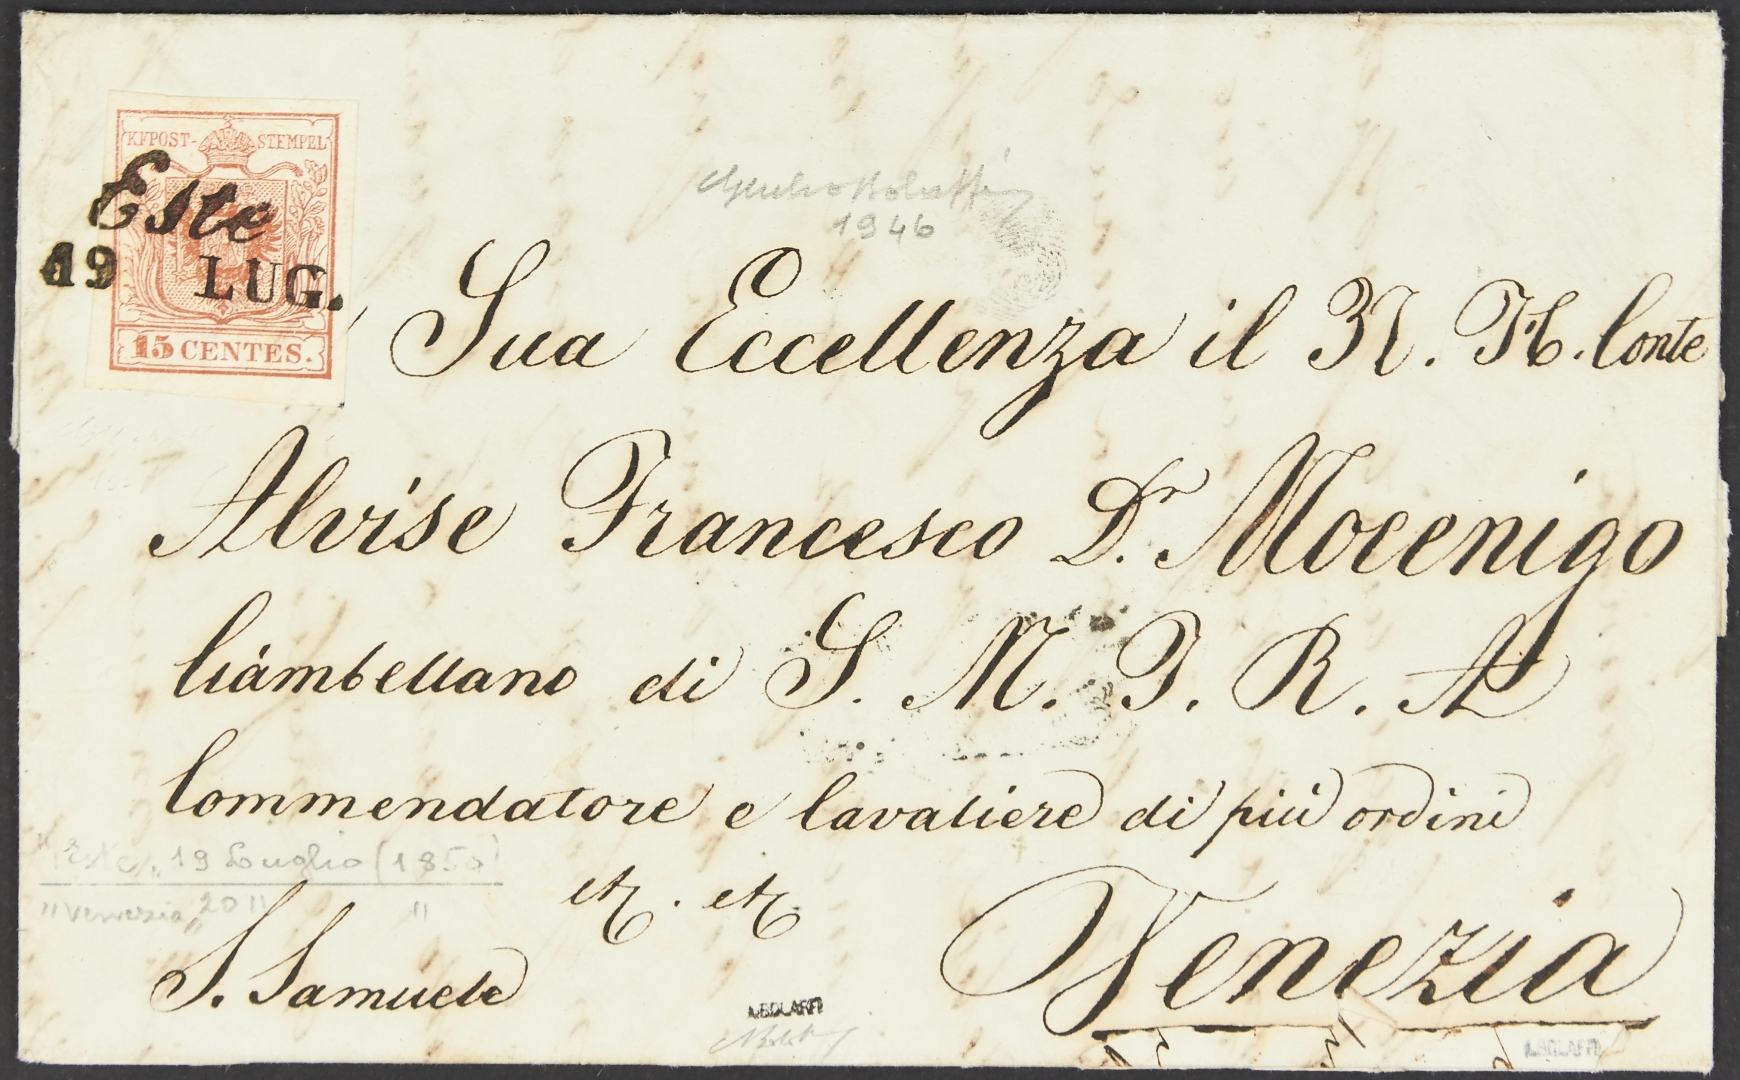 KKPOST-STEMPEL
Este
19 LUG.
15 CENTES.
Giulio Bolaffi
1946
Sua Eccellenza il N. H. Conte
Alvise Francesco Dr. Mocenigo
Ciambellano di S. M. I. R. A
Commendatore e Cavaliere di più ordini
etz. etz.
"Este" 19 Luglio (1850)
"Venezia" 20 " "
S. Samuele
Venezia
A.BOLAFFI
A.BOLAFFI